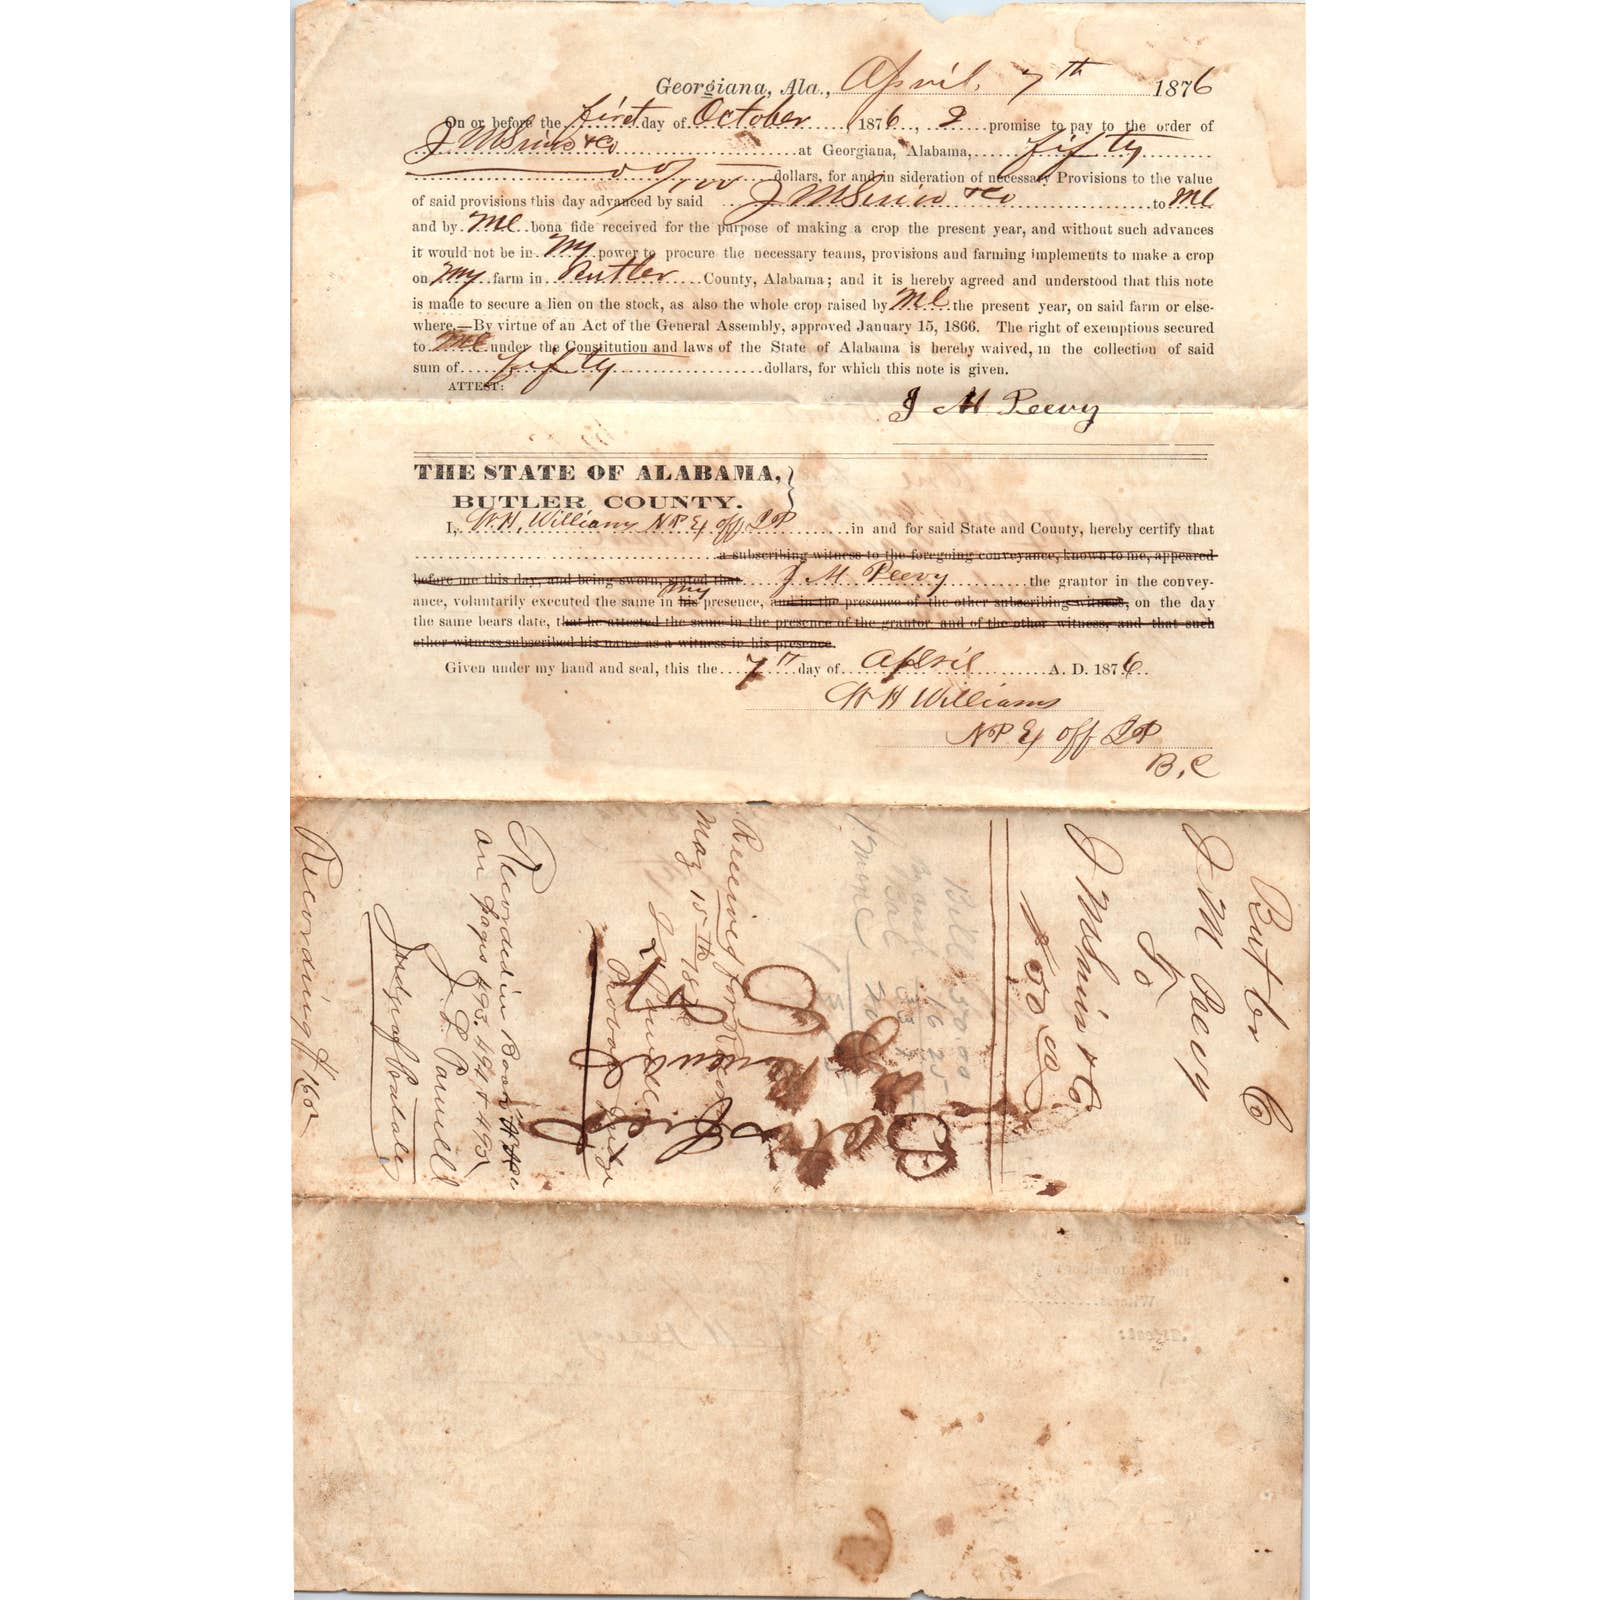 Georgiana, Ala., April, 7th 1876
On or before the first day of October, 1876, I promise to pay to the order of
J M Sims & Co at Georgiana, Alabama, fifty
00/100 dollars, for and in sideration of necessary Provisions to the value
of said provisions this day advanced by said J M Sims & Co to me
and by me bona fide received for the purpose of making a crop the present year, and without such advances
it would not be in my power to procure the necessary teams, provisions and farming implements to make a crop
on my farm in Butler County, Alabama; and it is hereby agreed and understood that this note
is made to secure a lien on the stock, as also the whole crop raised by me the present year, on said farm or else-
where.—By virtue of an Act of the General Assembly, approved January 15, 1866. The right of exemptions secured
to me under the Constitution and laws of the State of Alabama is hereby waived, in the collection of said
sum of fifty dollars, for which this note is given.
ATTEST:
J M Peevy
THE STATE OF ALABAMA,
BUTLER COUNTY.
I, W. H. Williams NP Ex off JP in and for said State and County, hereby certify that
a subscribing witness to the foregoing conveyance, known to me, appeared
before me this day, and being sworn, stated that J M Peevy the grantor in the convey-
ance, voluntarily executed the same in his my presence, and in the presence of the other subscribing witness, on the day
the same bears date, that he attested the same in the presence of the grantor and of the other witness, and that such
other witness subscribed his name as a witness in his presence.
Given under my hand and seal, this the 7th day of April A. D. 1876.
W H Williams
NP Ex off JP
B, C
Butler C
J M Peevy
To
J M Sims & Co
Bill 50.00
Received for Record
May 15th 1876
J L Powell
Probate Judge
Recorded in Book
on pages 493. 494 & 495
J. L. Powell
Judge of Probate
Recording $1.60